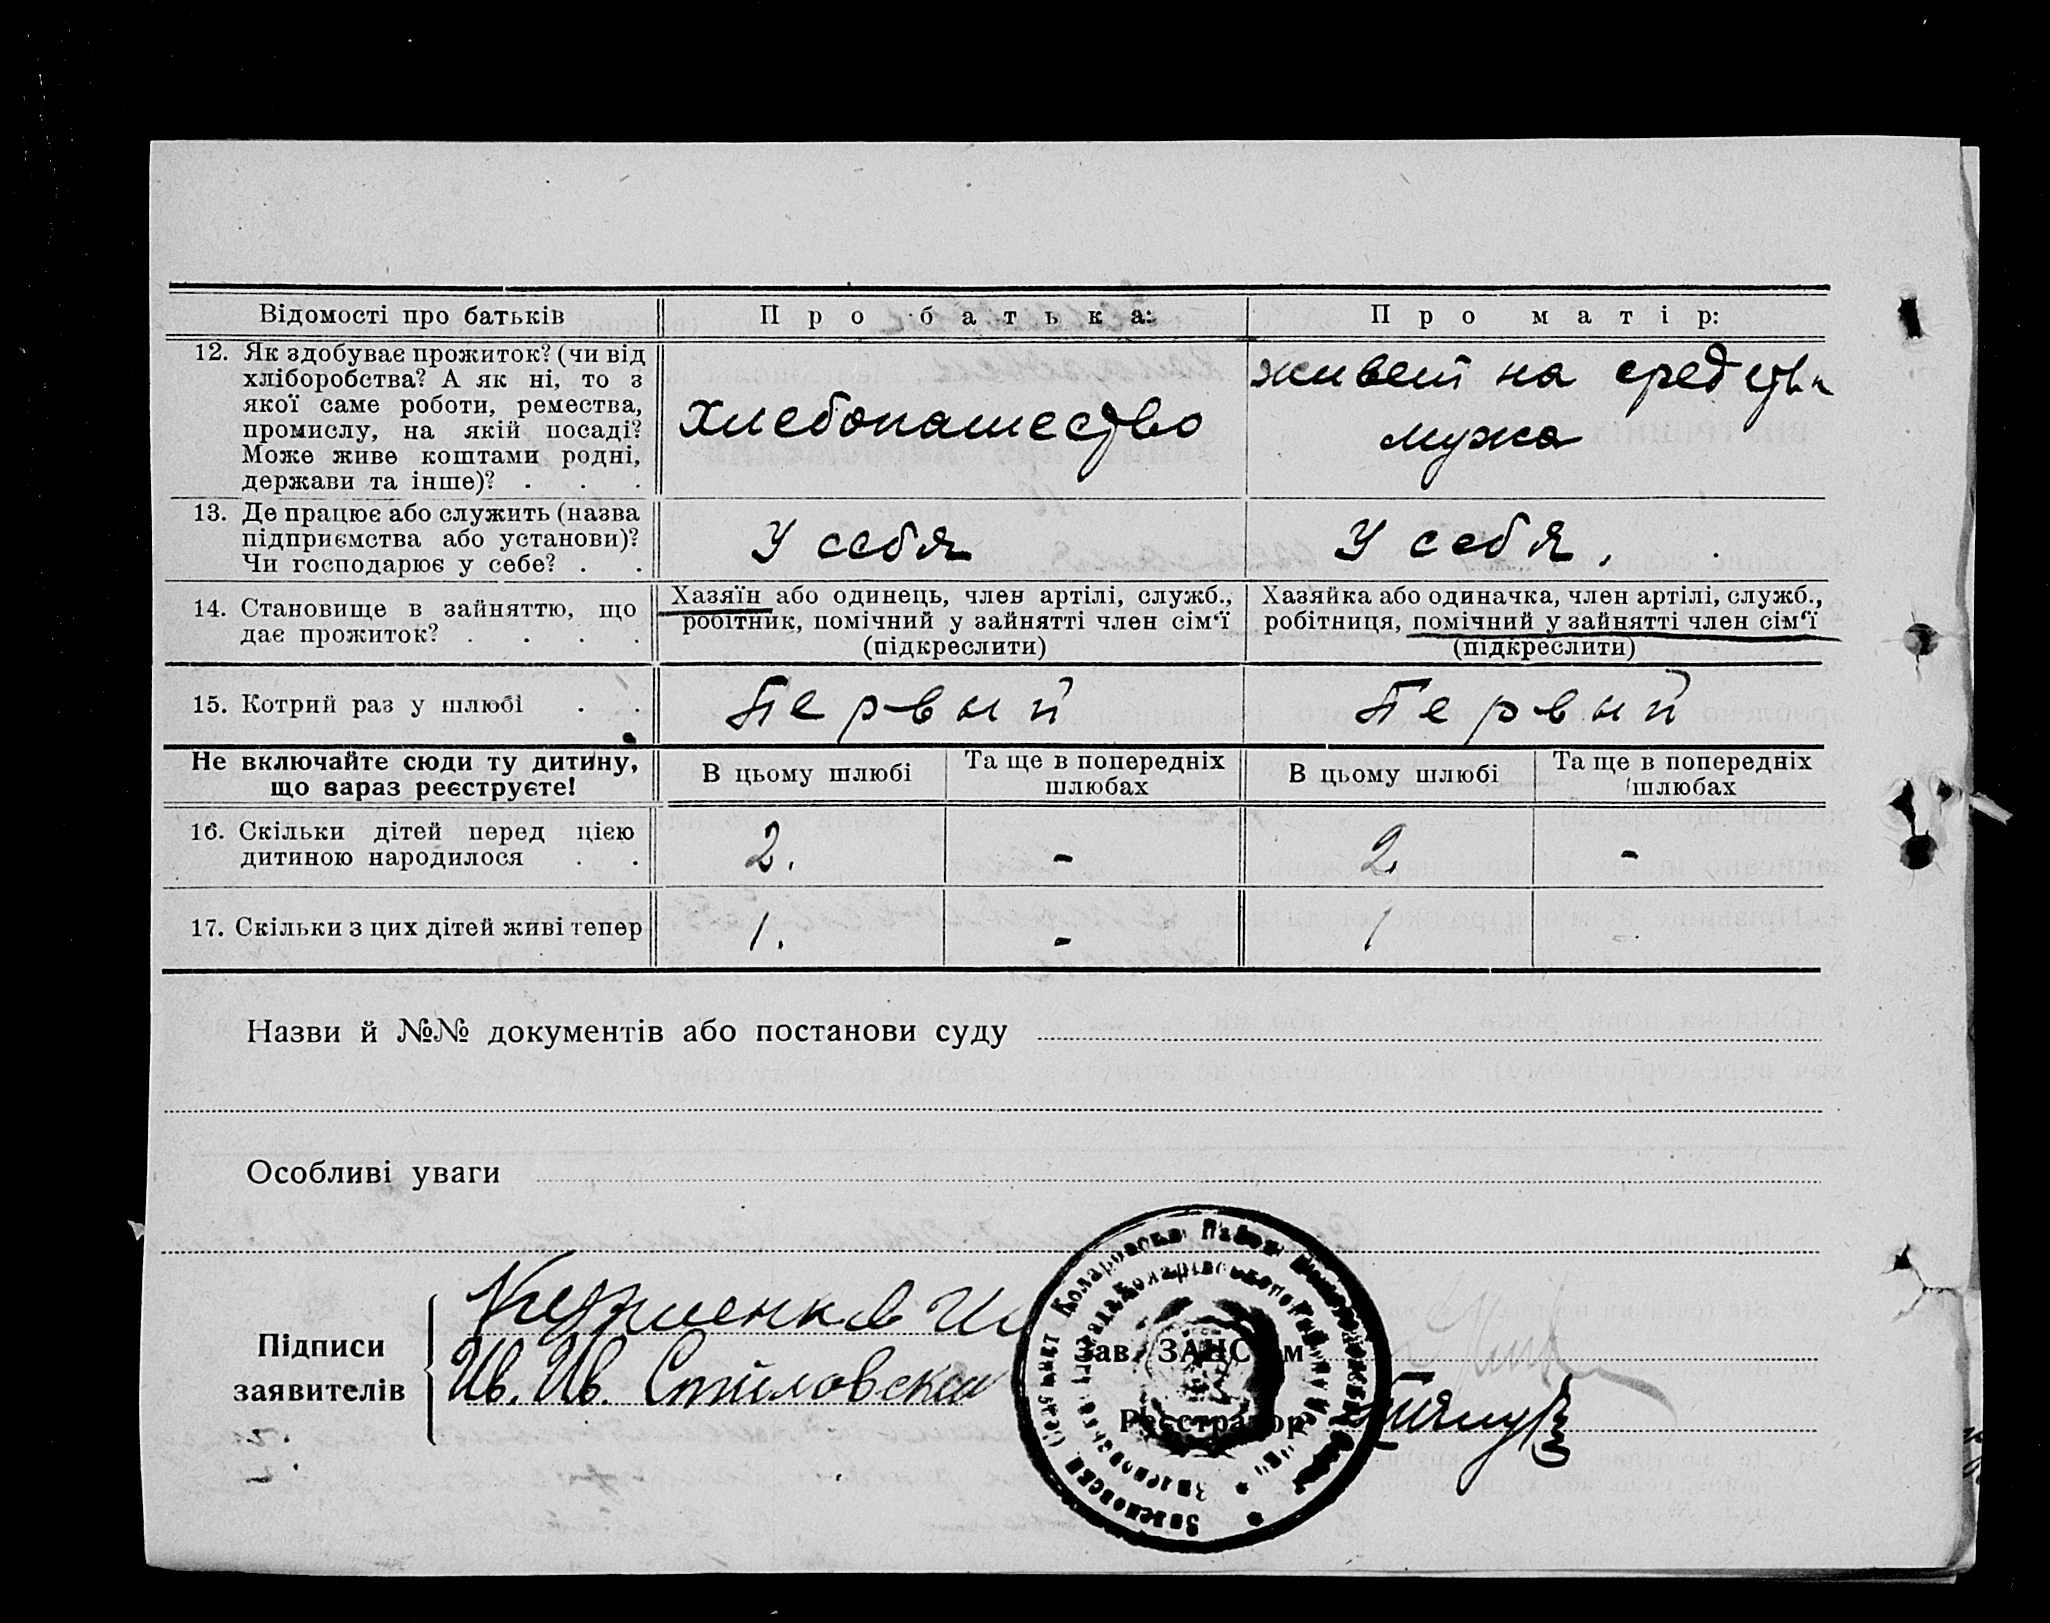 Відомості про батьків
Про батька:
Про матір:
12. Як здобуває прожиток? (чи від
хліборобства? А як ні, то з
якої саме роботи, ремества,
промислу, на якій посаді?
Може живе коштами родні,
держави та інше)? . . .
хлебопашество
живет на средства
мужа
13. Де працює або служить (назва
підприємства або установи)?
Чи господарює у себе? . .
У себя
У себя.
14. Становище в зайняттю, що
дає прожиток? . . . .
Хазяїн або одинець, член артілі, служб.,
робітник, помічний у зайнятті член сім'ї
(підкреслити)
Хазяйка або одиначка, член артілі, служб.,
робітниця, помічний у зайнятті член сім'ї
(підкреслити)
15. Котрий раз у шлюбі . .
Первый
Первый
Не включайте сюди ту дитину,
що зараз реєструєте!
В цьому шлюбі
Та ще в попередніх
шлюбах
В цьому шлюбі
Та ще в попередніх
шлюбах
16. Скільки дітей перед цією
дитиною народилося . .
2.
-
2.
-
17. Скільки з цих дітей живі тепер
1.
-
1
-
Назви й №№ документів або постанови суду
Особливі уваги
Підписи
заявителів
Ив. Ив.
Зав. ЗАНС'ом
Реєстратор